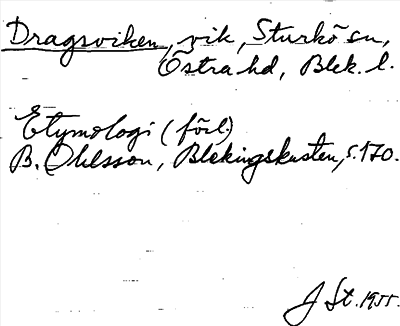 Dragsviken, vik, Sturkö sn,
Östra hd, Blek. l.
Etymologi (förl.)
B. Ohlsson, Blekingskusten, s. 170.
J St. 1955.